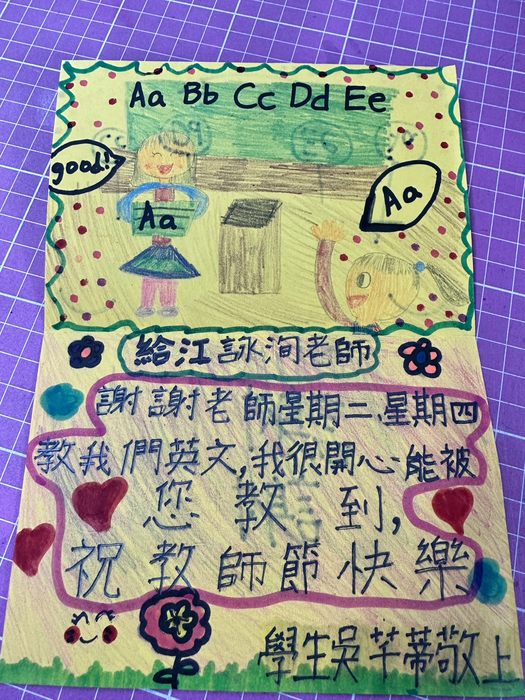 Aa Bb Cc Dd Ee
good!!
Aa
Aa
給江詠洵老師
謝謝老師星期二、星期四
教我們英文,我很開心能被
您教到,
祝教師節快樂
學生吳芊蒂敬上